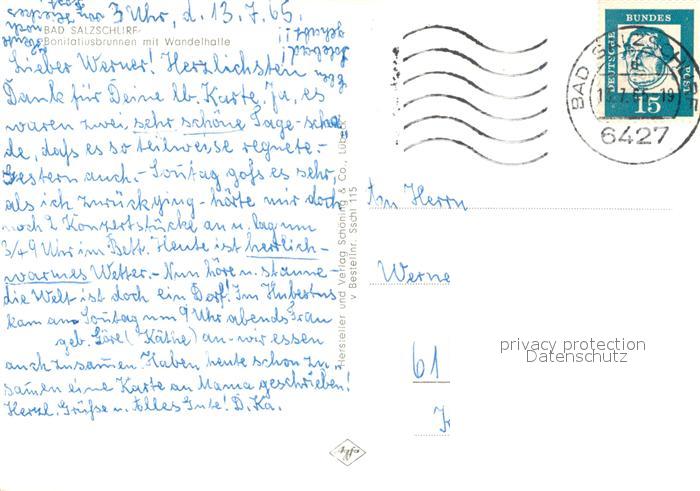 3 Uhr, d. 13.7.65.
BAD SALZSCHLIRF
Bonifatiusbrunnen mit Wandelhalle
Lieber Werner! Herzlichsten
Dank für Deine lb. Karte. Ja, es
waren zwei sehr schöne Tage - scha
de, dass es so teilweise regnete.-
Gestern auch.- Sonntag goss es sehr,
als ich zurückging - hörte mir doch
noch 2 Konzertstücke an u. lag um
3/4 9 Uhr im Bett. Heute ist herrlich-
warmes Wetter.- Nun höre u. staune-
die Welt ist doch ein Dorf! Im Hubertus
kam am Sonntag um 9 Uhr abends Frau
geb. Göre (Käthe) an - wir essen
auch zusamen. Haben heute schon zu-
samen eine Karte an Mama geschrieben!
Herzl. Grüße u. Alles Gute! D. Ka.
Hersteller und Verlag Schöning & Co., Lübeck
Bestellnr. Sschl 115
DEUTSCHE
BUNDES
POST
15
BAD SALZSCHLIRF
6427
An Herrn
Werne
61
privacy protection
Datenschutz